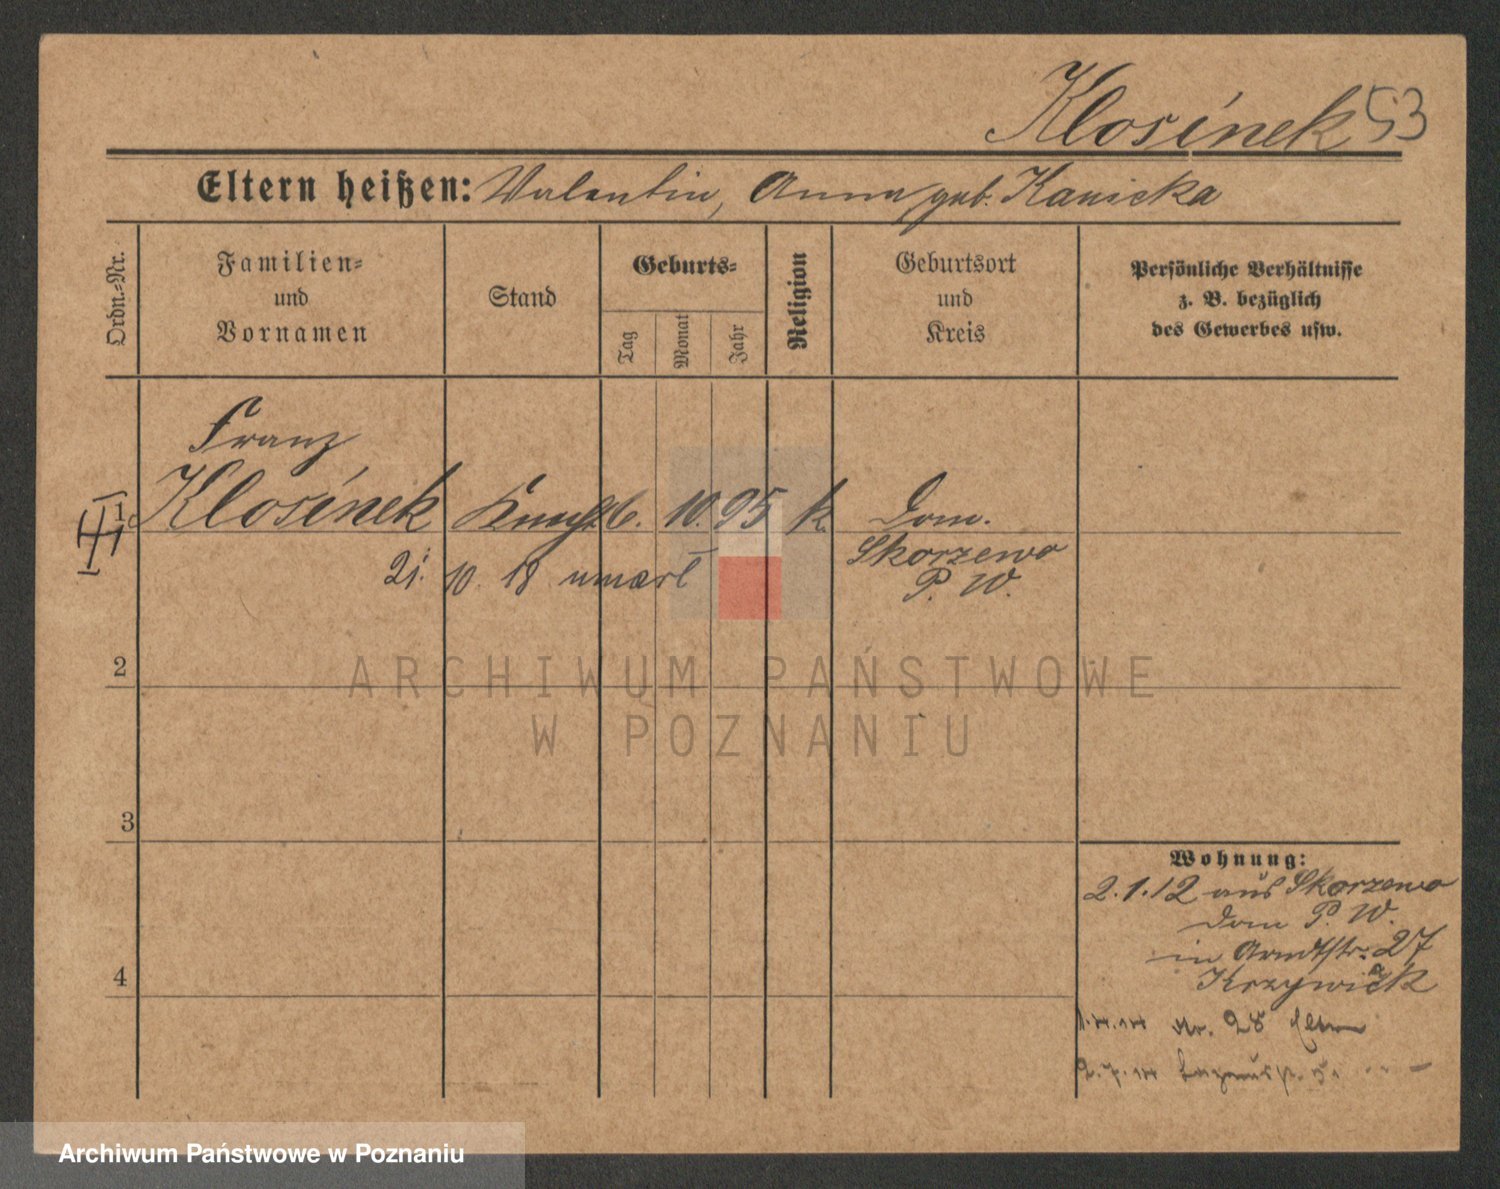 Klosinek 53
Eltern heißen: Valentin, Anna geb. Kanicka
Ordn.-Nr.
Familien-
und
Vornamen
Stand
Geburts-
Tag
Monat
Jahr
Religion
Geburtsort
und
Kreis
Persönliche Verhältnisse
z. B. bezüglich
des Gewerbes usw.
Franz
1 Klosinek Knecht 6. 10. 95 k. Dom.
Skorzewo
P. W.
21. 10. 18 umarł
2
3
4
Wohnung:
2.1.12 aus Skorzewo
Dom P. W.
in Arndtstr. 27
1.4.14 Nr. 28 Eltern
ARCHIWUM PAŃSTWOWE
W POZNANIU
Archiwum Państwowe w Poznaniu